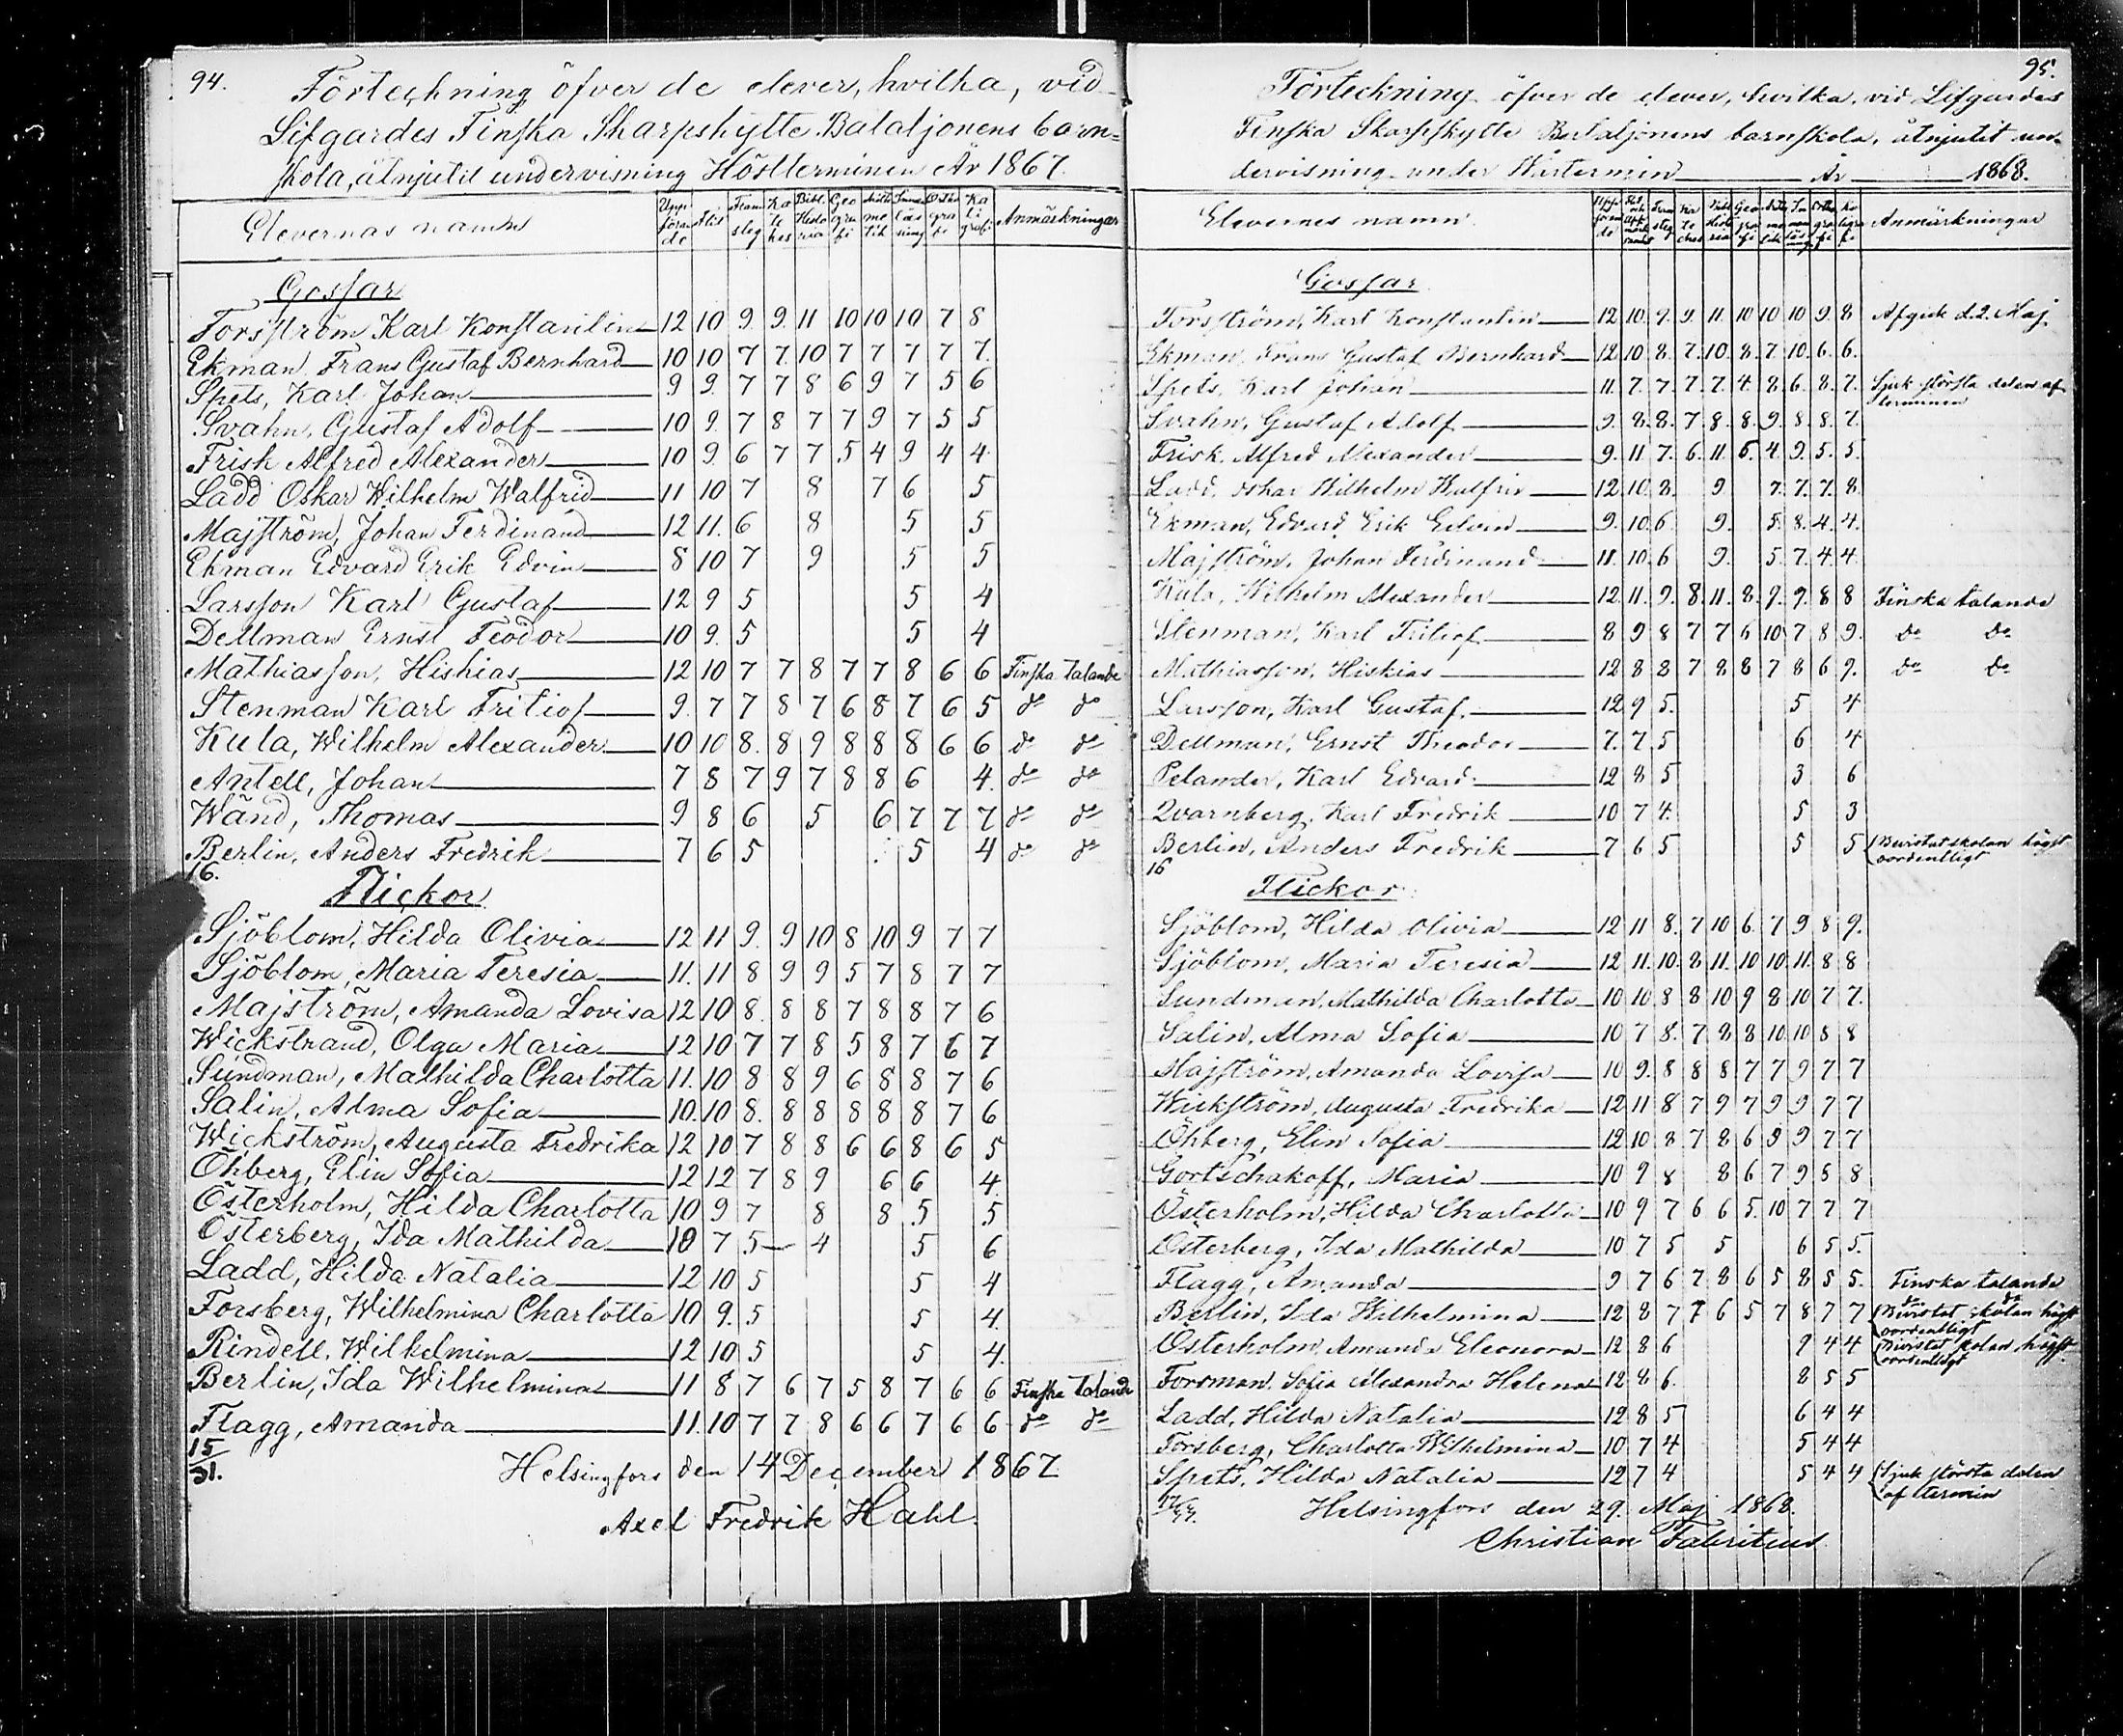 94.
Förteckning öfver de elever, hvilka, vid
Lifgardes Finska Skarpskytte Bataljonens barn=
skola, åtnjutit undervisning Höstterminen År 1867.
Elevernas namn Uppförande Flit Framsteg Katekes Bibl. Historia Geografi Aritmetik Innanläsning Ortografi Kaligrafi Anmärkningar
Gossar
Forsström Karl Konstantin 12 10 9. 9. 11 10 10 10 7 8
Ekman, Frans Gustaf Bernhard 10 10 7 7. 10 7 7 7 7 7.
Spets, Karl Johan 9 9. 7 7 8 6 9 7 5 6
Svahn, Gustaf Adolf 10 9. 7 8 7 7 9 7 5 5
Frisk Alfred Alexander 10 9. 6 7 7 5 4 9 4 4
Ladd Oskar Wilhelm Walfrid 11 10 7 8 7 6 5
Majström, Johan Ferdinand 12 11. 6 8 5 5
Ekman Edvard Erik Edvin 8 10 7 9 5 5
Larsson Karl Gustaf 12 9 5 5 4
Dellman Ernst Teodor 10 9. 5 5 4
Mathiasson, Hiskias 12 10 7 7 8 7 7 8 6 6 Finska talande
Stenman Karl Fritiof 9. 7 7 8 7 6 8 7 6 5 do do
Kula, Wilhelm Alexander 10 10 8. 8 9 8 8 8 6 6 do do
Antell, Johan 7 8 7 9 7 8 8 6 4. do do
Wänd, Thomas 9 8 6 5 6 7 7 7 do do
Berlin, Anders Fredrik 7 6 5 5 4 do do
16.
Flickor
Sjöblom, Hilda Olivia 12 11 9. 9 10 8 10 9 7 7
Sjöblom, Maria Teresia 11. 11 8 9 9 5 7 8 7 7
Majström, Amanda Lovisa 12 10 8. 8 8 7 8 8 7 6
Wickstrand, Olga Maria 12 10 7 7 8 5 8 7 6 7
Sundman, Mathilda Charlotta 11. 10 8 8 9 6 8 8 7 6
Salin, Alma Sofia 10. 10 8. 8 8 8 8 8 7 6
Wickström, Augusta Fredrika 12 10 7 8 8 6 6 8 6 5
Öhberg, Elin Sofia 12 12 7 8 9 6 6 4.
Österholm, Hilda Charlotta 10 9 7 8 8 5 5
Österberg, Ida Mathilda 10 7 5 — 4 5 6
Ladd, Hilda Natalia 12 10 5 5 4
Forsberg, Wilhelmina Charlotta 10 9. 5 5 4.
Rindell, Wilhelmina 12 10 5 5 4.
Berlin, Ida Wilhelmina 11 8 7 6 7 5 8 7 6 6 Finska talande
Flagg, Amanda 11. 10 7 7 8 6 6 7 6 6 do do
15
31.
Helsingfors den 14 December 1867
Axel Fredrik Hahl.
95.
Förteckning öfver de elever, hvilka, vid Lifgardes
Finska Skarpskytte Bataljonens barnskola, åtnjutit un-
dervisning under Wårtermin År 1868.
Elevernes namn Anmärkningar
Gossar
Forsström, Karl Konstantin 12 10. 9. 9. 11. 10 10 10 9. 8 Afgick d. 2. Maj
Ekman, Frans Gustaf Bernhard 12 10 8. 7. 10. 8. 7. 10. 6. 6.
Spets, Karl Johan 11. 7. 7. 7. 7. 4 8. 6. 8. 7. Sjuk största delen af
terminen
Svahn, Gustaf Adolf 9. 8. 8. 7 8. 8. 9. 8 8. 7.
Frisk, Alfred Alexander 9. 11 7. 6. 11. 6. 4. 9. 5. 5.
Ladd, Oskar Wilhelm Walfrid 12. 10. 8. 9. 7. 7. 7. 8.
Ekman, Edvard Erik Edvin 9. 10. 6. 9. 5. 8. 4. 4.
Majström, Johan Ferdinand 11. 10. 6 9. 5. 7. 4 4.
Kula, Wilhelm Alexander 12. 11. 9. 8. 11. 8. 9. 9. 8 8 Finska talande
Stenman, Karl Fritiof 8 9 8 7 7 6 10 7 8 9. do do
Mathiasson, Hiskias 12 8 8 7 8 8 7 8 6 9. do do
Larsson, Karl Gustaf. 12 9 5. 5 4
Dellman, Ernst Theodor 7. 7 5 6 4
Pelander, Karl Edvard 12 8 5 3 6
Qvarnberg, Karl Fredrik 10 7 4. 5 3
Berlin, Anders Fredrik 7 6 5 5 5 Bevistat skolan högst
oordentligt
16
Flickor
Sjöblom, Hilda Olivia 12 11 8. 7 10 6. 7 9 8 9.
Sjöblom, Maria Teresia 12 11. 10. 8 11. 10 10. 11. 8 8
Sundman, Mathilda Charlotta 10 10 8 8 10 9 8 10 7 7.
Salin, Alma Sofia 10 7 8. 7 8 8 10. 10 8 8
Majström, Amanda Lovisa 10 9. 8 8 8 7 7 9 7 7
Wickström, Augusta Fredrika 12 11 8 7 9 7 9 9 7 7
Öhberg, Elin Sofia 12 10 8 7 8 6 9 9 7 7
Gortschakoff, Maria 10 9 8 8 6 7 9 5 8
Österholm, Hilda Charlotta 10 9 7 6 6 5. 10 7 7 7
Österberg, Ida Mathilda 10 7 5 5 6 5 5.
Flagg, Amanda 9 7 6 7 8 6 5 8 5 5. Finska talande
Berlin, Ida Wilhelmina 12 8 7 7 6 5 7 8 7 7 do do Bevistat skolan högst
oordentligt
Österholm, Amanda Eleonora 12 8 6 9 4 4 Bevistat skolan högst
oordentligt
Forsman, Sofia Alexandra Helena 12 8 6. 8 5 5
Ladd, Hilda Natalia 12 8 5 6 4 4
Forsberg, Charlotta Wilhelmina 10 7 4 5 4 4
Spets, Hilda Natalia 12 7 4 5 4 4 Sjuk största delen
af termin
17
33.
Helsingfors den 29. Maj 1868.
Christian Fabritius